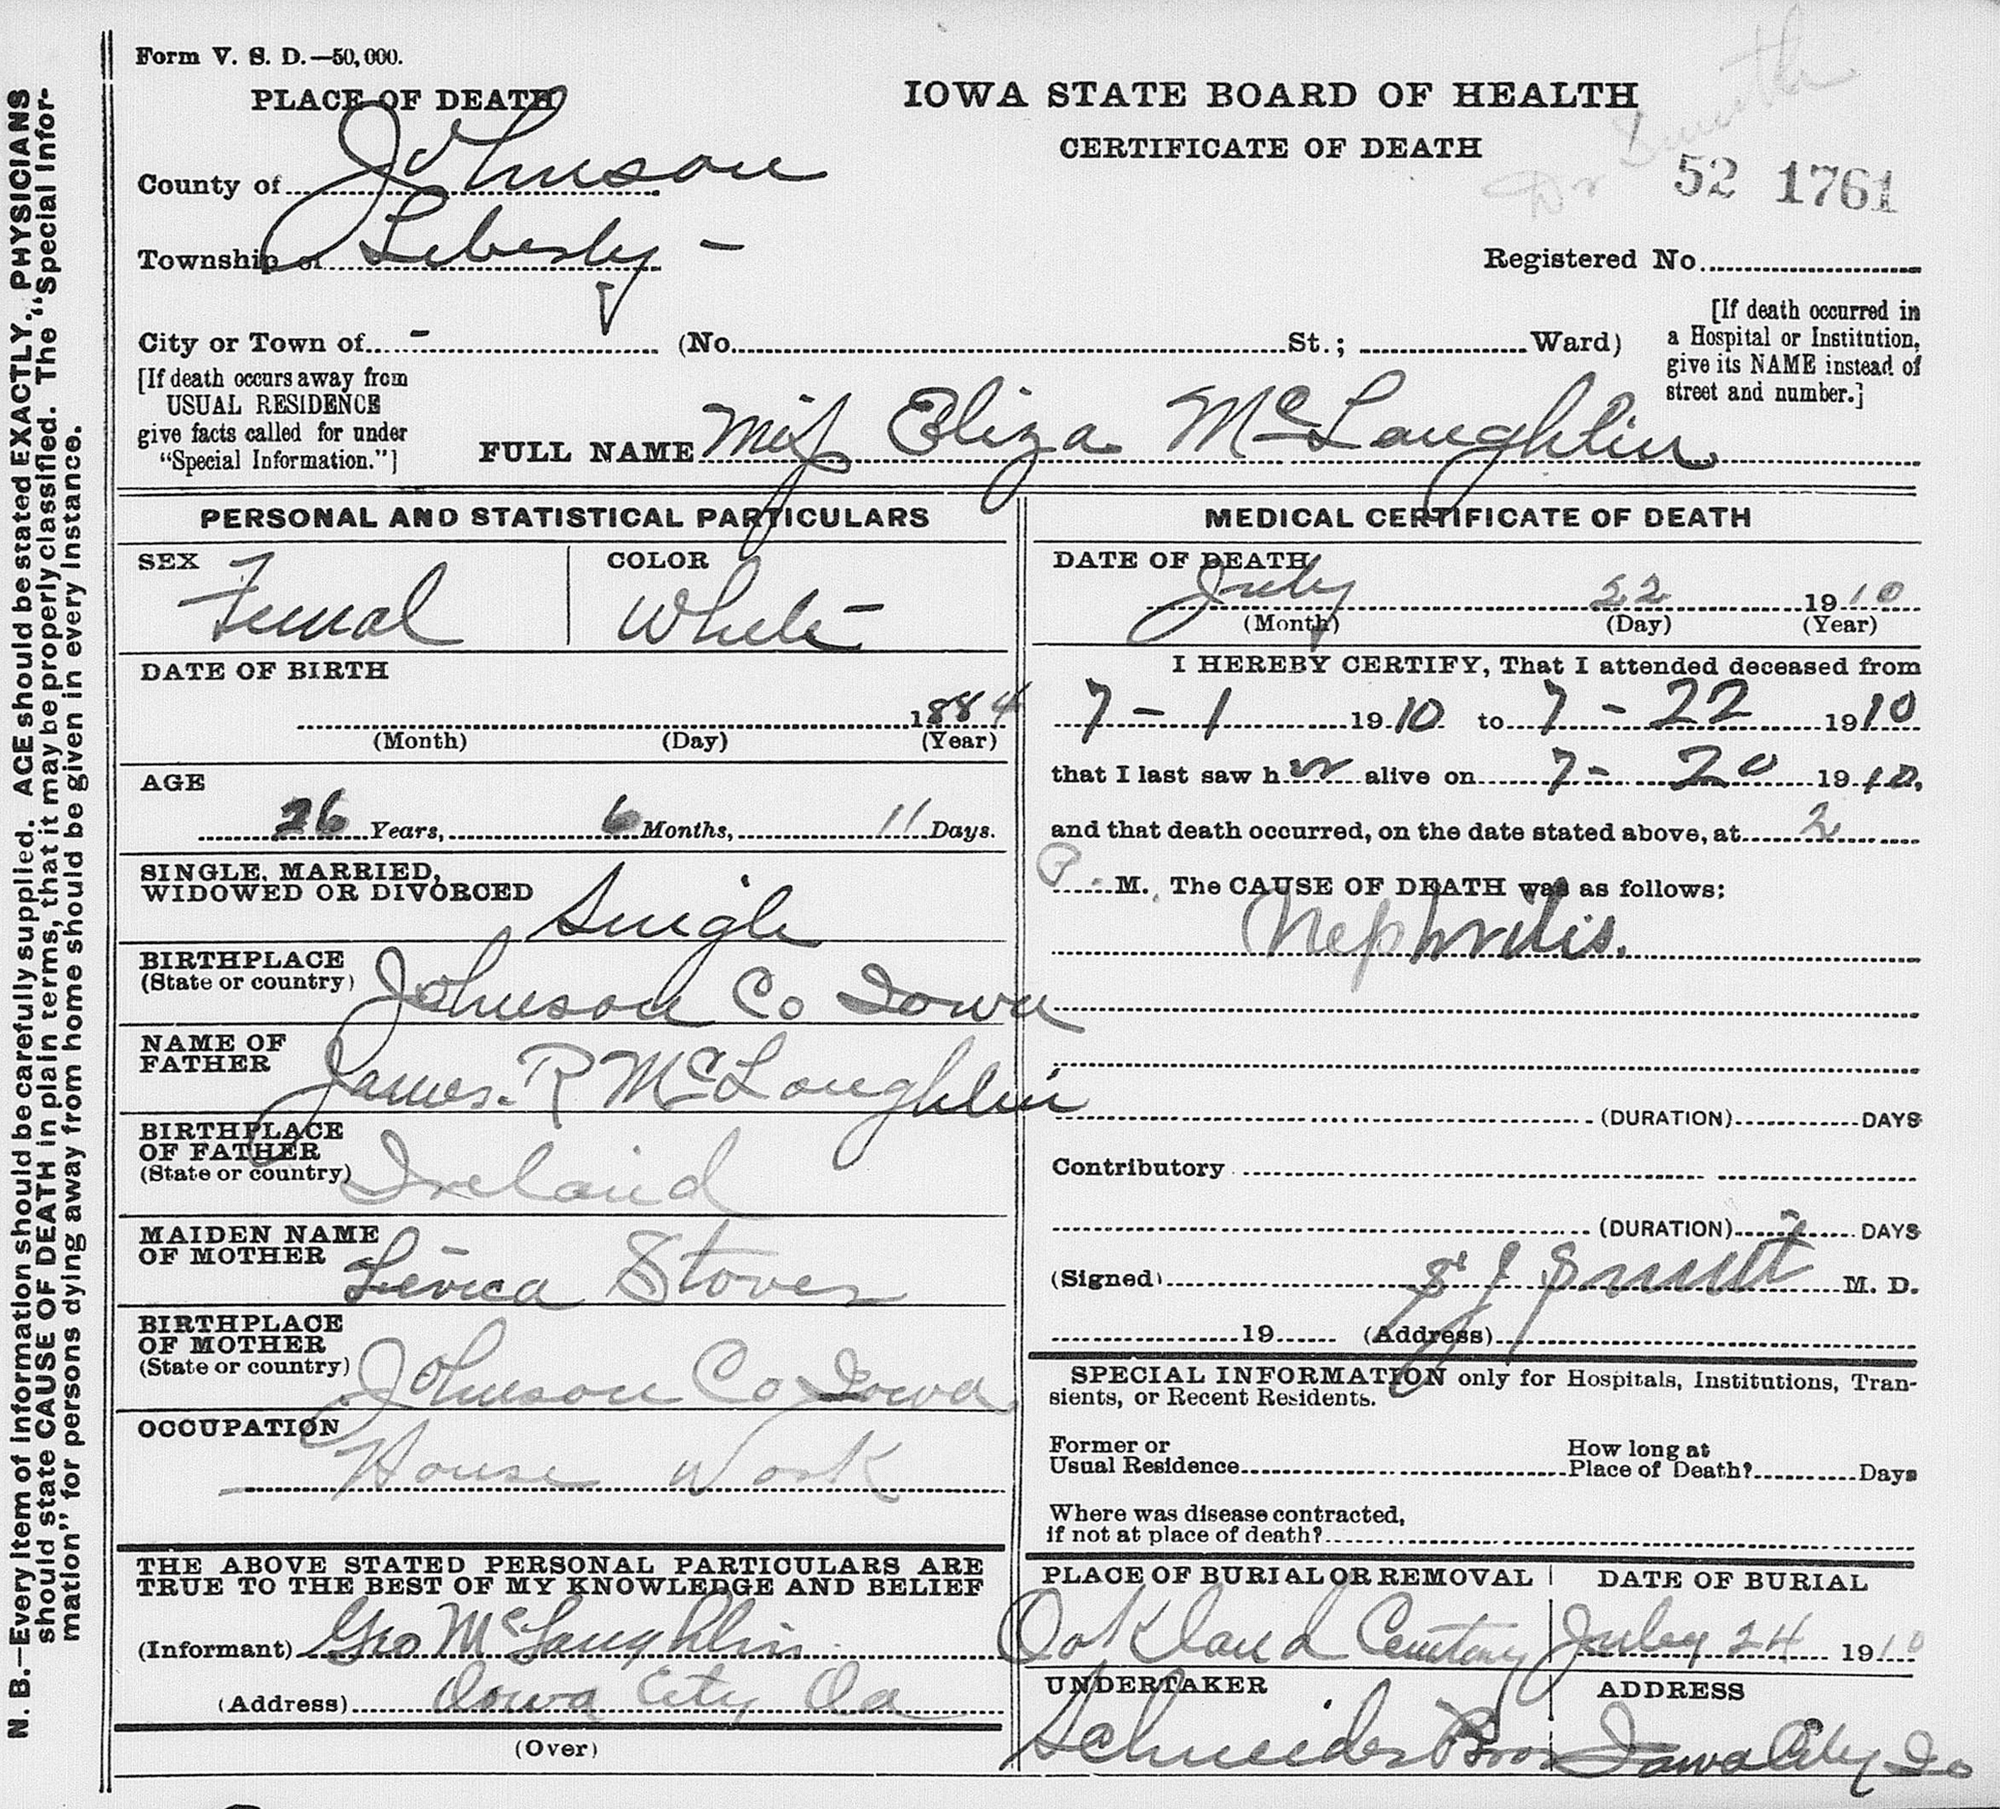 Form V. S. D.—50,000.
PLACE OF DEATH
IOWA STATE BOARD OF HEALTH
CERTIFICATE OF DEATH
Dr Smith
52 1761
County of Johnson
Township of Liberty -
Registered No.
City or Town of - (No. St.; Ward)
[If death occurred in
a Hospital or Institution,
give its NAME instead of
street and number.]
[If death occurs away from
USUAL RESIDENCE
give facts called for under
"Special Information."]
FULL NAME Miss Eliza McLaughlin
PERSONAL AND STATISTICAL PARTICULARS
SEX Femal
COLOR White
DATE OF BIRTH
1884
(Month) (Day) (Year)
AGE
26 Years, 6 Months, 11 Days.
SINGLE, MARRIED,
WIDOWED OR DIVORCED Single
BIRTHPLACE
(State or country) Johnson Co Iowa
NAME OF
FATHER James. R McLaughlin
BIRTHPLACE
OF FATHER
(State or country) Ireland
MAIDEN NAME
OF MOTHER Stover
BIRTHPLACE
OF MOTHER
(State or country) Johnson Co Iowa
OCCUPATION
House Work
THE ABOVE STATED PERSONAL PARTICULARS ARE
TRUE TO THE BEST OF MY KNOWLEDGE AND BELIEF
(Informant) Geo McLaughlin
(Address) Iowa City Ia
(Over)
MEDICAL CERTIFICATE OF DEATH
DATE OF DEATH
July 22 1910
(Month) (Day) (Year)
I HEREBY CERTIFY, That I attended deceased from
7 - 1 1910 to 7 - 22 1910
that I last saw her alive on 7 - 20 1910,
and that death occurred, on the date stated above, at 2
P. M. The CAUSE OF DEATH was as follows:
Nephritis.
(DURATION) DAYS
Contributory
(DURATION) DAYS
(Signed) Smith M. D.
19 (Address)
SPECIAL INFORMATION only for Hospitals, Institutions, Tran-
sients, or Recent Residents.
Former or
Usual Residence
How long at
Place of Death? Days
Where was disease contracted,
if not at place of death?
PLACE OF BURIAL OR REMOVAL
Oakland Cemetary
DATE OF BURIAL
July 24 1910
UNDERTAKER
Schneider Bros
ADDRESS
Iowa City Io
N. B.—Every item of information should be carefully supplied. AGE should be stated EXACTLY. PHYSICIANS
should state CAUSE OF DEATH in plain terms, that it may be properly classified. The "Special Infor-
mation" for persons dying away from home should be given in every instance.